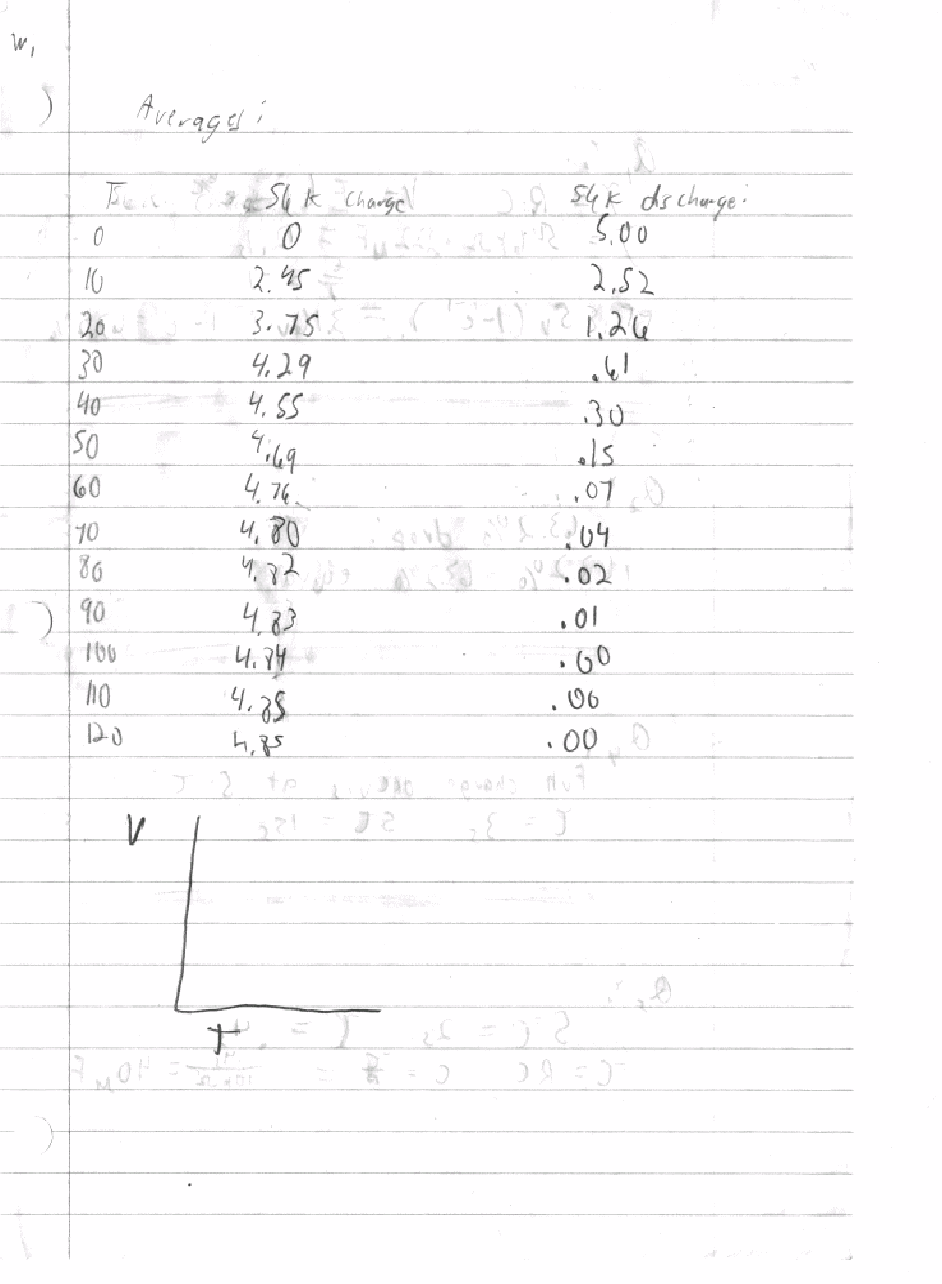 W,
Averages:
Ts 54 k charge 54k dscharge:
0 0 5.00
10 2.45 2.52
20 3.75 1.26
30 4.29 .61
40 4.55 .30
50 4.69 .15
60 4.76 .07
70 4.80 .04
80 4.82 .02
90 4.83 .01
100 4.84 .00
110 4.85 .00
120 4.85 .00
V
T